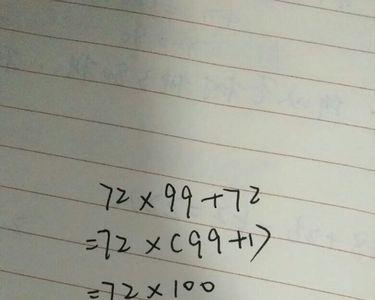 72×99+72
=72×(99+1)
=72×100